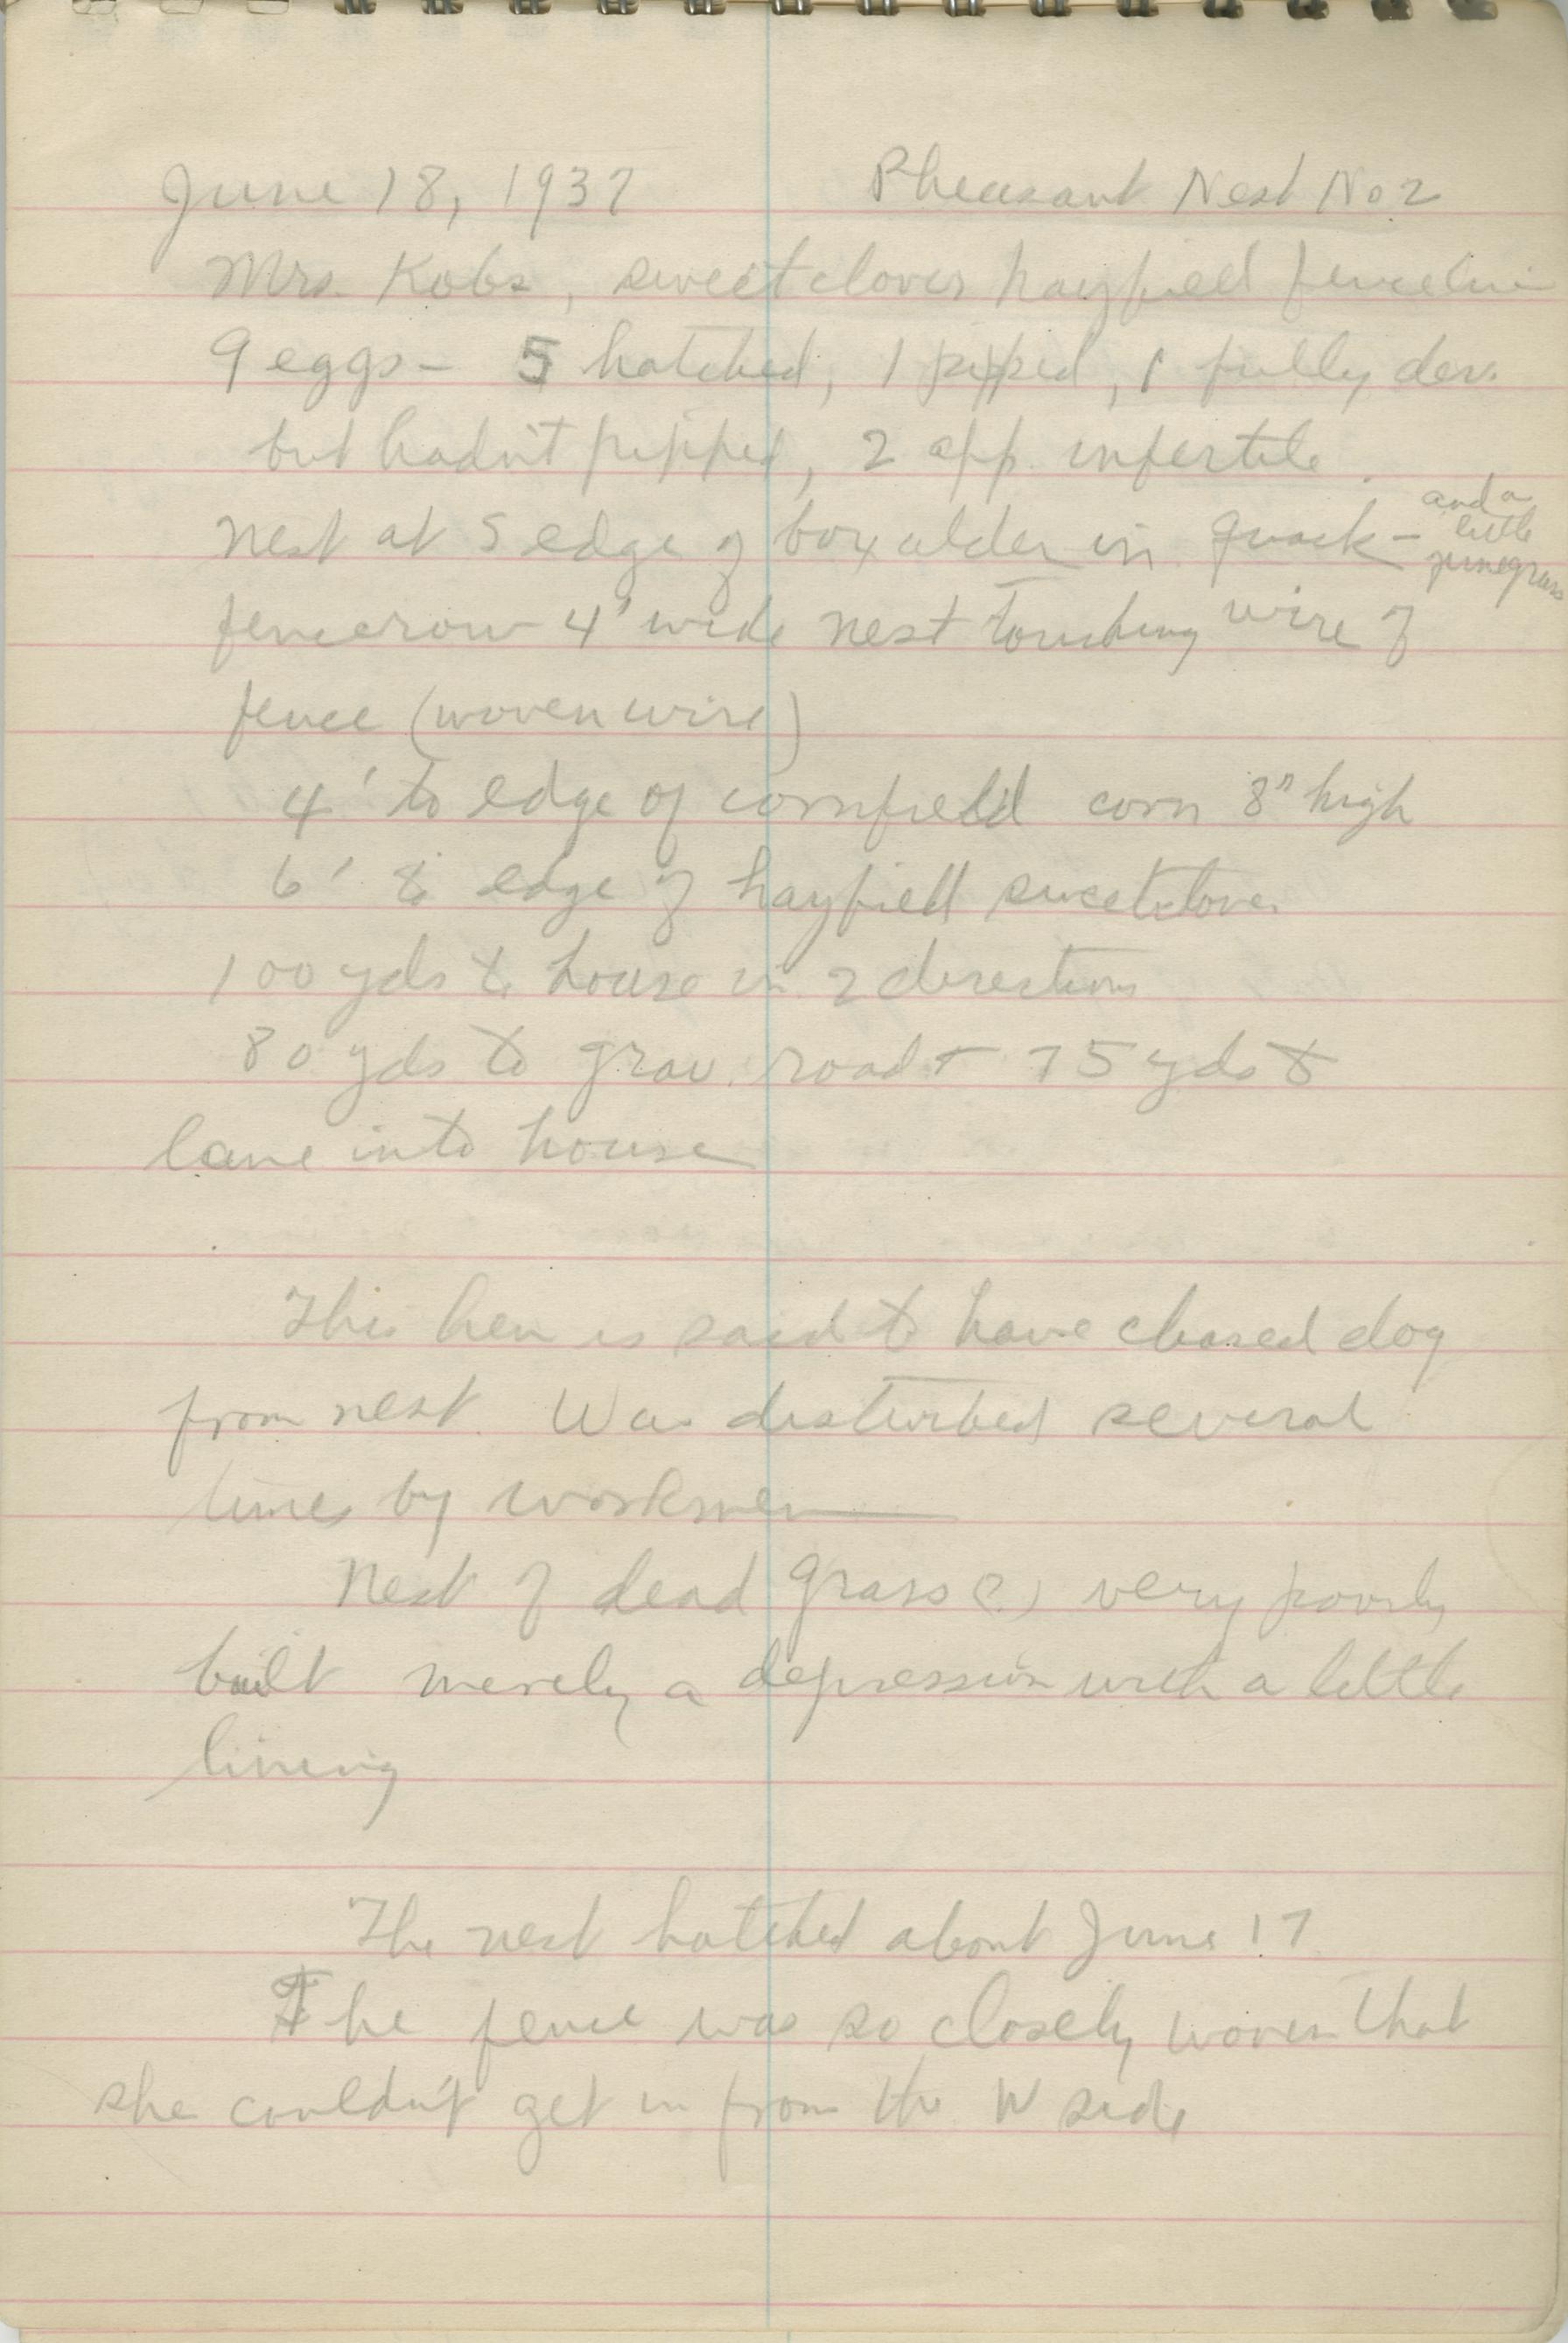 June 18, 1937 Pheasant Nest No 2
Mrs. Kobs, sweet clover hayfield fenceline
9 eggs - 5 hatched, 1 pipped, 1 fully dev.
but hadn't pipped, 2 app. infertile.
Nest at S edge of box alder in quack - and a
little
junegrass
fencerow 4' wide nest touching wire of
fence (woven wire)
4' to edge of cornfield corn 8" high
6' to edge of hayfield sweetclover
100 yds to house in 2 directions
80 yds to grav. road + 75 yds to
lane into house
This hen is said to have chased dog
from nest. Was disturbed several
times by workmen
Nest of dead grass (?) very poorly
built merely a depression with a little
lining
The nest hatched about June 17
The fence was so closely woven that
she couldn't get in from the W side